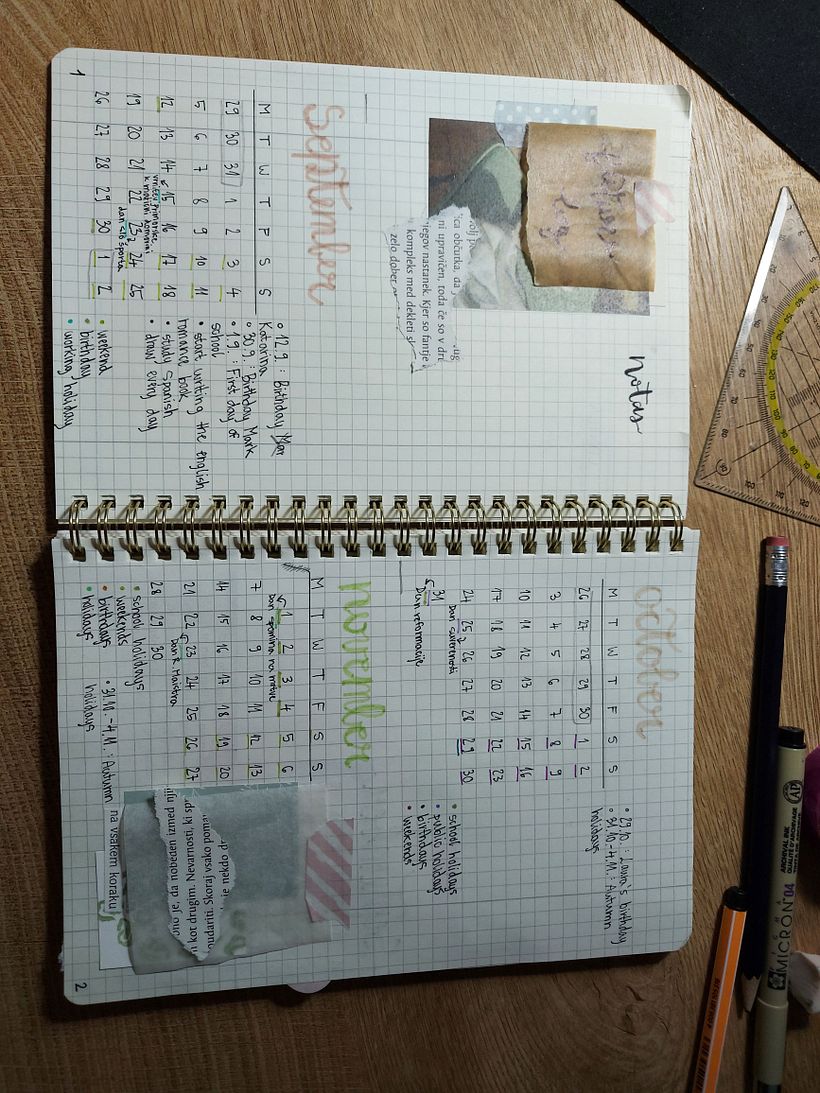 notas
ica občutka, da
ni upravičen, toda če so v dru
jegov nastanek. Kjer so fantje
kompleks med dekleti
zelo dober
September
M T W T F S S
29 30 31 1 2 3 4
5 6 7 8 9 10 11
12 13 14 15 16 17 18
vrnitev Primorske
k matični domovini
19 20 21 22 23 24 25
dan slo športa
26 27 28 29 30 1 2
• 12.9. : Birthday
Katarina
• 30.9. : Birthday Mark
• 1.9. : First day of
school
• start writing the english
romance book
• study spanish
• draw every day
• weekend
• birthday
• working holiday
1
october
M T W T F S S
26 27 28 29 30 1 2
3 4 5 6 7 8 9
10 11 12 13 14 15 16
17 18 19 20 21 22 23
24 25 26 27 28 29 30
Dan suverenosti
31
Dan reformacije
• 29.10. : Laura's birthday
• 31.10.-4.11. : Autumn
holidays
• school holidays
• public holidays
• birthdays
• weekends
november
M T W T F S S
1 2 3 4 5 6
Dan spomina na mrtve
7 8 9 10 11 12 13
14 15 16 17 18 19 20
21 22 23 24 25 26 27
Dan R. Maistra
28 29 30
• school holidays
• weekends
• birthdays
• holidays
• 31.10.-4.11. : Autumn
holidays
ono je, da nobeden izmed nji
n kot drugim. Nevarnosti, ki
udariti. Skoraj vsako poma
je nekdo dr
na vsakem koraku
2
AP
ARCHIVAL INK
QUALITÉ D'ARCHIVAGE
MICRON 04